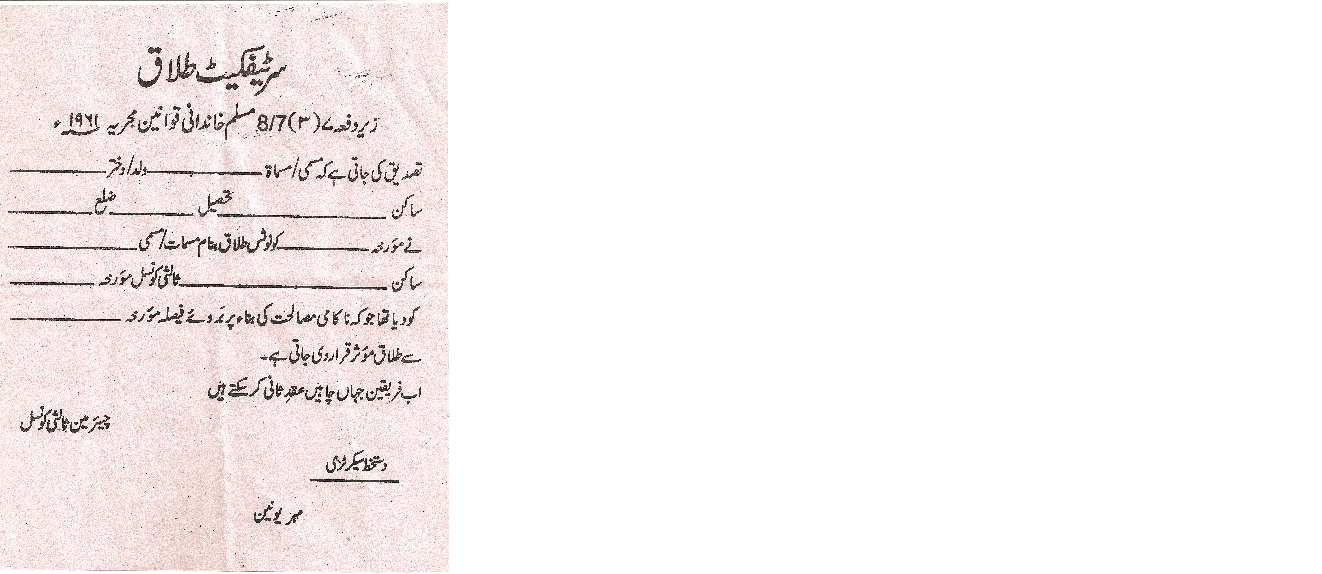 سرٹیفکیٹ طلاق
زیر دفعہ ۷(۳)8/7 مسلم خاندانی قوانین مجریہ ۱۹۶۱ء
تصدیق کی جاتی ہے کہ مسمی/مسماۃ ولد/دختر
ساکن تحصیل ضلع
نے مؤرخہ کو نوٹس طلاق بنام مسمات/مسمی
ساکن ثالثی کونسل مؤرخہ
کو دیا تھا جو کہ ناکامی مصالحت کی بناء پر بَروئے فیصلہ مؤرخہ
سے طلاق مؤثر قرار دی جاتی ہے۔
اب فریقین جہاں چاہیں عقدِ ثانی کر سکتے ہیں
چیئرمین ثالثی کونسل
دستخط سیکرٹری
مہر یونین